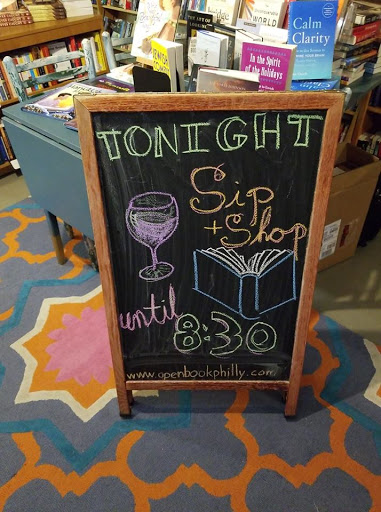 Calm
Clarity
In the Spirit of
the Holidays
TONIGHT
Sip
+ Shop
until
8:30
www.openbookphilly.com